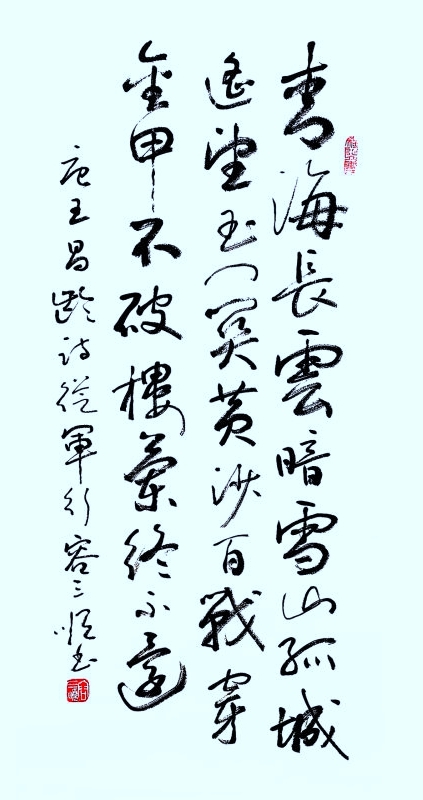 青海長雲暗雪山孤城
遙望玉門関黄沙百戰穿
金甲不破樓蘭終不還
唐王昌齡詩從軍行容三順书